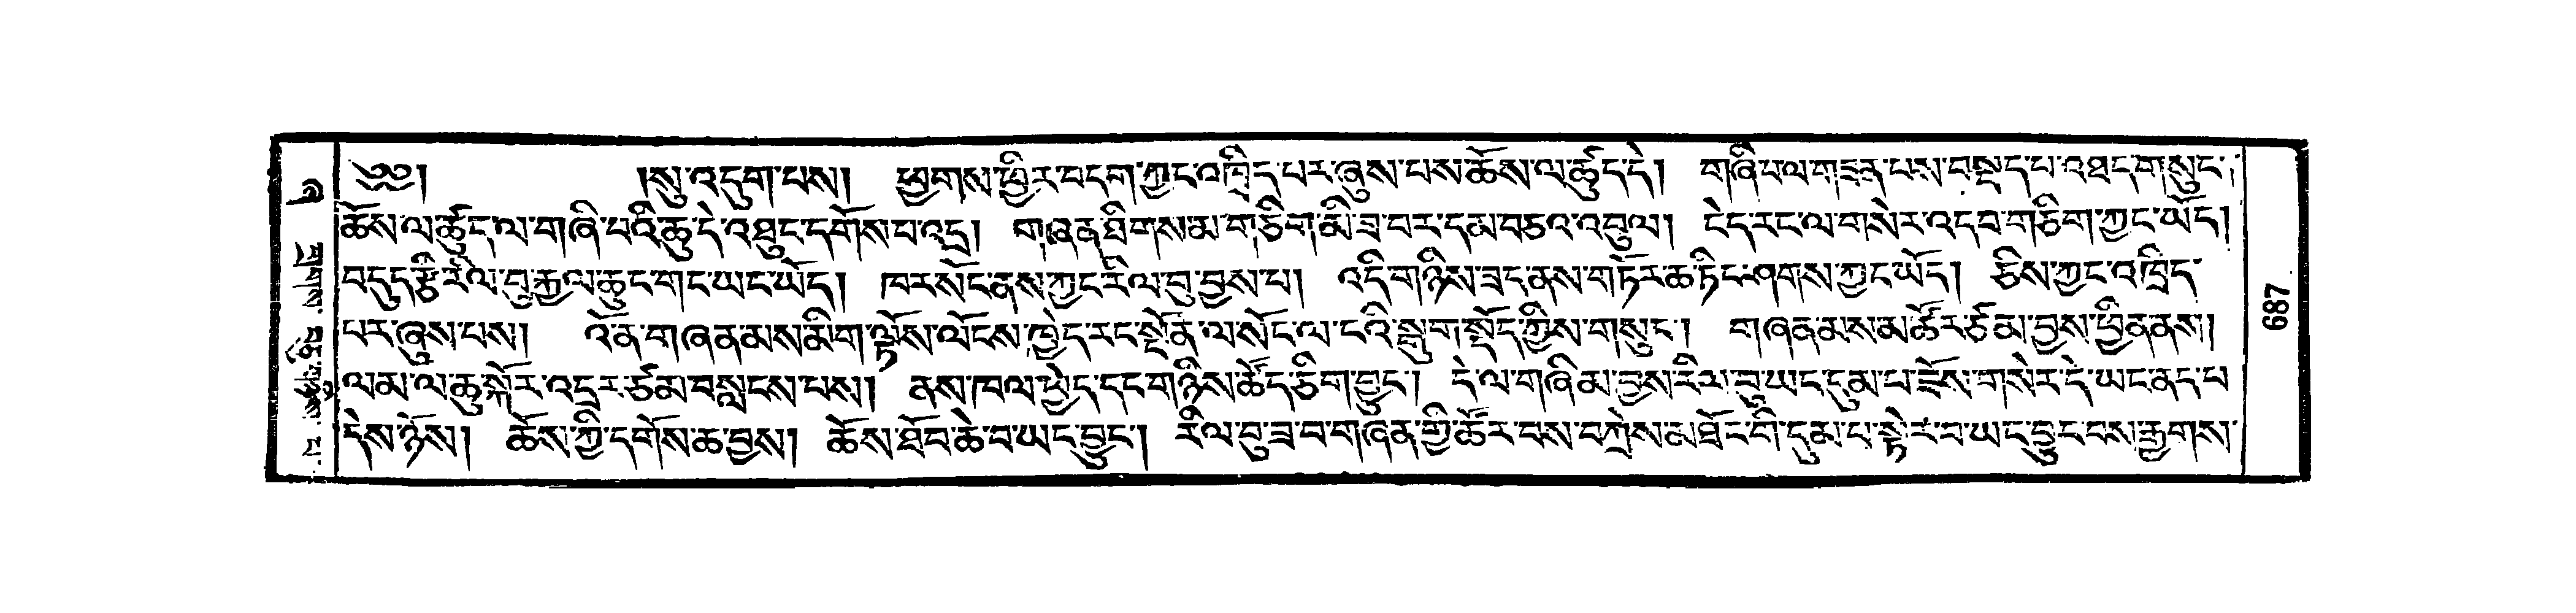 ༄༅། །སུ་འདུག་པས། ཕྱགས་ཕྱིར་བདག་ཀྱང་འཁྲིད་པར་ཞུས་པས་ཆོས་ལ་ཚུད་དེ། གཞི་པལ་གདྲན་པས་བསྡད་པ་འཐད་གསུང་
ཆོས་ལ་ཚུད་ལ་གཞི་པའི་ཆུ་དེ་འཐུང་དགོས་པ་འདྲ། གཞན་ཐིགས་མ་གཅིག་མི་ཟ་བར་དམ་བཅའ་འབུལ། ངེད་རང་ལ་གསེར་འདབ་གཅིག་ཀྱང་ཡོད།
བདུད་རྩི་རིལ་བུ་རྐྱལ་ཆུང་གང་ཡང་ཡོད། ཁར་སོང་ནས་ཀྱང་རིལ་བུ་བྱས་པ། འདི་གཉིས་ཟད་ནས་གཏོར་ཆ་ཏིང་ཤགས་ཀྱང་ཡོད། ཅིས་ཀྱང་འཁྲིད་
པར་ཞུས་པས། འོན་གཞན་མས་མིག་ལྟོས་ལོངས་ཁྱེད་རང་སྔོན་ལ་སོང་ལ་ངའི་སྒུག་སྡོད་ཀྱིས་གསུང་། གཞན་མས་མ་ཚོར་ཙམ་བྱས་ཕྱིན་ནས།
ལམ་ལ་ཆུ་སྐོར་འདྲར་ཙམ་བསླངས་པས། ནས་ཁལ་ཕྱེད་དང་གཉིས་ཚོད་ཅིག་བྱུང་། དེ་ལ་གཞི་མ་བྱས་རིལ་བུ་ཡང་དུམ་པ་རྫོས་གསེར་དེ་ཡང་ནད་པ
དེས་ཉོས། ཆོས་ཀྱི་དགོས་ཆ་བྱས། ཆོས་ཐོབ་ཆེ་བ་ཡང་བྱུང་། རིལ་བུ་ཟ་བ་གཞན་གྱི་ཚོར་བས་བཀྲེས་མཐོང་གི་དུམ་པ་སྟེར་བ་ཡང་བྱུང་བས་རྒྱགས་
687